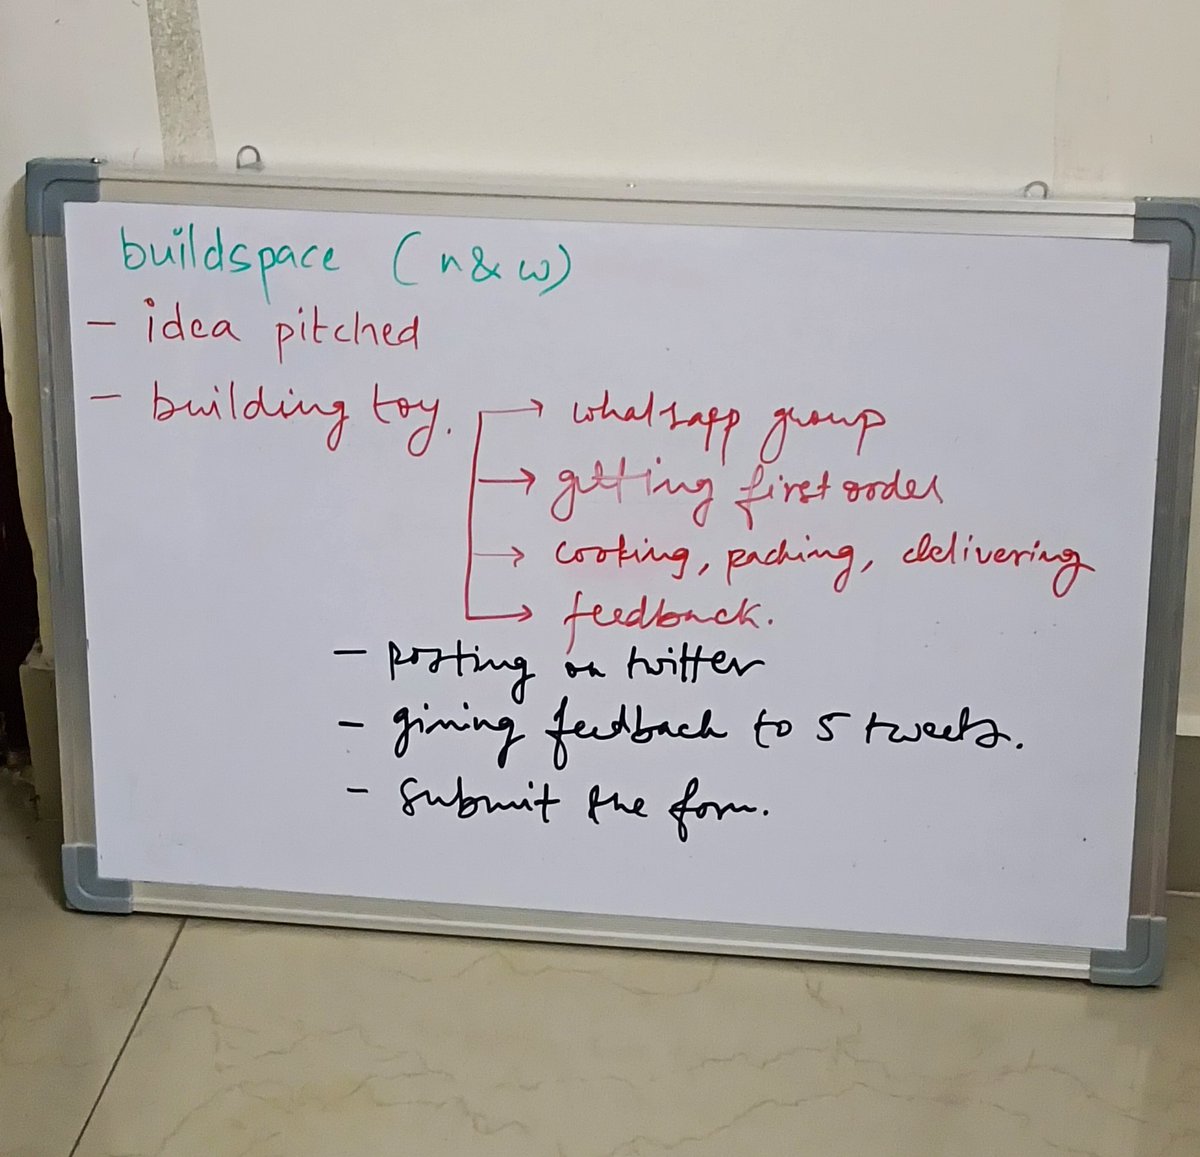 buildspace (n & w)
- idea pitched
- building toy.
→ whatsapp group
→ getting first order
→ cooking, packing, delivering
→ feedback.
- posting on twitter
- giving feedback to 5 tweets.
- submit the form.